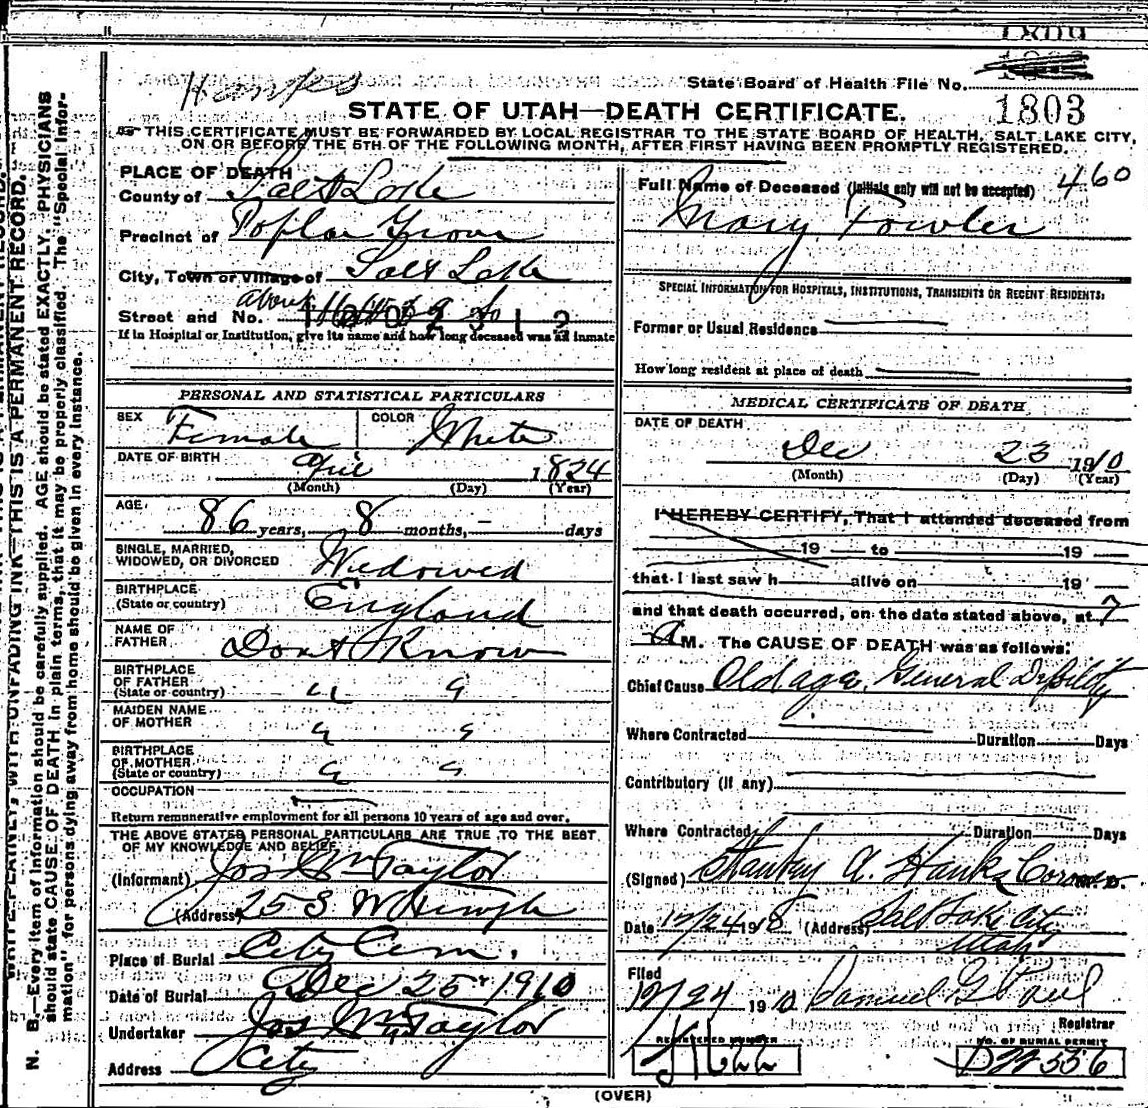 1809
Hanks
State Board of Health File No.
1803
STATE OF UTAH—DEATH CERTIFICATE.
THIS CERTIFICATE MUST BE FORWARDED BY LOCAL REGISTRAR TO THE STATE BOARD OF HEALTH, SALT LAKE CITY,
ON OR BEFORE THE 5TH OF THE FOLLOWING MONTH, AFTER FIRST HAVING BEEN PROMPTLY REGISTERED.
PLACE OF DEATH
County of Salt Lake
Precinct of Poplar Grove
City, Town or Village of Salt Lake
Street and No. about So
If in Hospital or Institution, give its name and how long deceased was an inmate
PERSONAL AND STATISTICAL PARTICULARS
SEX Female COLOR White
DATE OF BIRTH April 1824
(Month) (Day) (Year)
AGE 86 years, 8 months, — days
SINGLE, MARRIED,
WIDOWED, OR DIVORCED Widowed
BIRTHPLACE
(State or country) England
NAME OF
FATHER Dont Know
BIRTHPLACE
OF FATHER
(State or country) " "
MAIDEN NAME
OF MOTHER " "
BIRTHPLACE
OF MOTHER
(State or country) " "
OCCUPATION
Return remunerative employment for all persons 10 years of age and over.
THE ABOVE STATED PERSONAL PARTICULARS ARE TRUE TO THE BEST
OF MY KNOWLEDGE AND BELIEF.
(Informant) Jos Wm Taylor
(Address) 25 S W Temple
Place of Burial City Cem.
Date of Burial Dec 25 1910
Undertaker Jos Wm Taylor
Address City
Full Name of Deceased (Initials only will not be accepted) 460
Mary Fowler
SPECIAL INFORMATION FOR HOSPITALS, INSTITUTIONS, TRANSIENTS OR RECENT RESIDENTS:
Former or Usual Residence
How long resident at place of death
MEDICAL CERTIFICATE OF DEATH
DATE OF DEATH
Dec 23 1910
(Month) (Day) (Year)
I HEREBY CERTIFY, That I attended deceased from
19 to 19
that I last saw h alive on 19
and that death occurred, on the date stated above, at 7
A M. The CAUSE OF DEATH was as follows:
Chief Cause Old age, General Debility
Where Contracted Duration Days
Contributory (if any)
Where Contracted Duration Days
(Signed) Stanley A. Hanks Coroner M.D.
Date 12/24 19 (Address) Salt Lake City
Utah
Filed
12/24 1910 Samuel G Paul
Registrar
REGISTERED NUMBER NO. OF BURIAL PERMIT
D22556
(OVER)
N. B.—Every item of information should be carefully supplied. AGE should be stated EXACTLY. PHYSICIANS
should state CAUSE OF DEATH in plain terms, that it may be properly classified. The "Special Infor-
mation" for persons dying away from home should be given in every instance.
WRITE PLAINLY, WITH UNFADING INK—THIS IS A PERMANENT RECORD.